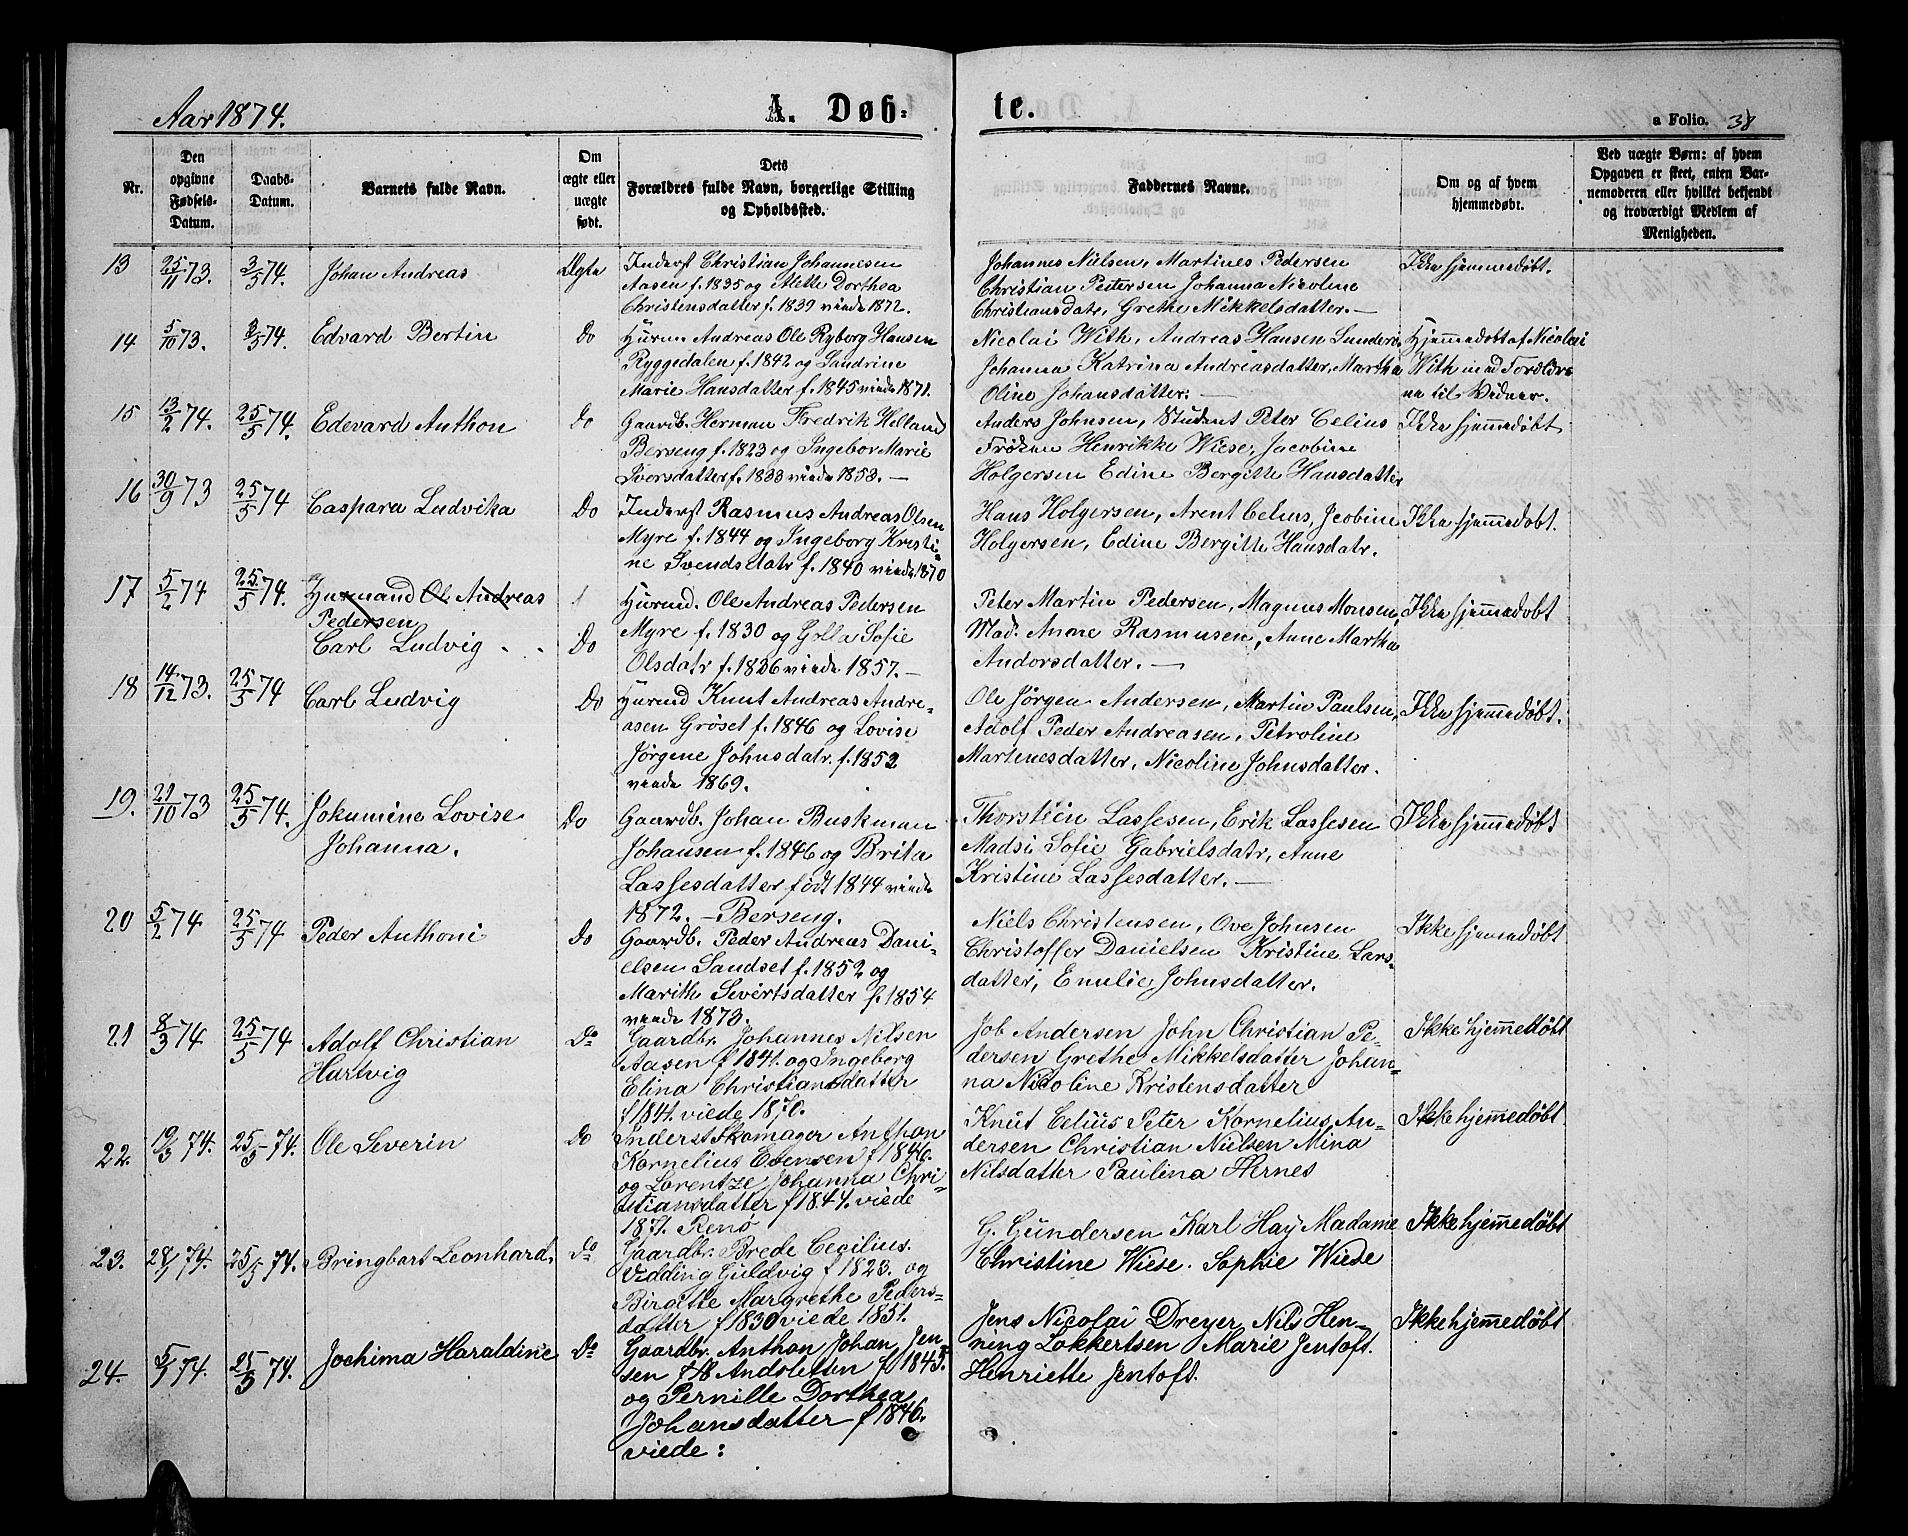 Aar 1874.
A. Døb-
te.
a Folio. 38
Nr.
Den opgivne Fødsels-Datum.
Daabs-Datum.
Barnets fulde Navn.
Om ægte eller uægte født.
Dets Forældres fulde Navn, borgerlige Stilling og Opholdssted.
Faddernes Navne.
Om og af hvem hjemmedøbt.
Ved uægte Børn: af hvem Opgaven er skeet, enten Barnemoderen eller hvilket bekjendt og troværdigt Medlem af Menigheden.
13 25/11 73. 3/5 74. Johan Andreas Ægte
Inderst Christian Johannesen
Aasen f. 1835 og Alette Dorthea
Christensdatter f. 1839 viede 1872.
Johannes Nielsen, Martines Pedersen
Christian Peitersen Johanna Nicoline
Christiansdatr, Grethe Mikkelsdatter. —
Ikke hjemmedøbt.
14 5/10 73. 3/5 74. Edvard Bertin Do
Hurm Andreas Ole Ryberg Hansen
Ryggedalen f. 1842 og Sandrine
Marie Hansdatter f. 1845 viede 1871.
Nicolai With, Andreas Hansen
Johanna Katrina Andreasdatter, Martha
Oline Johansdatter. —
Hjemmedøbt af Nicolai
With med Forældre
ne til Vidner.
15 13/2 74. 25/5 74. Edevard Anthon Do
Gaardb. Herman Fredrik Helland
Berseng f. 1823 og Ingebor Marie
Iversdatter f. 1833 viede 1853. —
Anders Johnsen, Student Peter Celius
Frøken Henrikke Wiese, Jacobine
Holgersen Edine Bergitte Hansdatter
Ikke hjemmedøbt
16 30/9 73 25/5 74 Caspara Ludvika Do
Inderst Rasmus Andreas Olsen
Myre f. 1844 og Ingeborg Kristi-
ne Svendsdatr f. 1840 viede 1870
Hans Holgersen, Arent Celius, Jcobine
Holgersen, Edine Bergitte Hansdatr.
Ikke hjemmedøbt.
17 5/2 74 25/5 74. Hurmand Ole Andreas
Pedersen
Carl Ludvig Do
Hurmd. Ole Andreas Pedersen
Myre f. 1830 og Gølla Sofie
Olsdatr f. 1836 viede 1857. —
Peter Martin Pedersen, Magnus Monsen,
Mad. Anne Rasmusen, Anne Martha
Andorsdatter. —
Ikke hjemmedøbt
18 14/12 73. 25/5 74 Carl Ludvig Do
Hurmd Knut Andreas Andre-
asen Grøset f. 1846 og Lovise
Jørgene Johnsdatr. f. 1852
viede 1869.
Ole Jørgen Andersen, Martin Paulsen,
Adolf Peder Andreasen, Petroline
Martinesdatter, Nicoline Johnsdatter.
Ikke hjemmedøbt.
19. 21/10 73 25/5 74. Jokumine Lovise
Johanna. Do
Gaardb. Johan Buskman
Johansen f. 1846 og Brita
Lassesdatter født 1844 viede
1872. — Berseng.
Thorstein Lassesen, Erik Lassesen
Madsi Sofie Gabrielsdatr, Anne
Kristine Lassesdatter. —
Ikke hjemmedøbt
20 5/2 74 25/5 74 Peder Anthoni Do
Gaardb. Peder Andreas Dani-
elsen Sandset f. 1852 og
Marith Sivertsdatter f. 1854
viede 1873.
Niels Christensen, Ove Johnsen
Christoffer Danielsen Kristine Lars-
datter, Emilie Johnsdatter.
Ikke hjemmedøbt
21 8/3 74 25/5 74 Adolf Christian
Hartvig Do
Gaardbr. Johannes Nilsen
Aasen f 1841. og Ingeborg
Elina Christiansdatter
f 1841. viede 1870.
Job Andersen John Christian Pe-
dersen Grethe Mikkelsdatter Johan-
na Nicoline Kristensdatter
Ikke hjemmedøbt
22. 19/3 74. 25/5 74. Ole Severin Do
Inderst Skomager Anthon
Kornelius Evensen f 1846.
og Lorentze Johanna Chri-
stiansdatter f 1844. viede
1871. Renø
Knut Celius Peter Kornelius An-
dersen Christian Nielsen Mina
Nilsdatter Paulina Hernes
Ikke hjemmedøbt
23. 28/1 74. 25/5 74. Bringbart Leonhard. Do
Gaardbr. Brede Cecilius.
Vedding Guldvig f 1823. og
Birgitte Margrethe Peders-
datter f 1830 viede 1851.
G. Gundersen Karl Hay Madame
Christine Wiese. Sophie Wiese
Ikke hjemmedøbt
24. 5/3 74. 25/5 74. Jochima Haraldine Do
Gaardbr. Anthon Johan Jen
sen
og Pernille Dorthea
Johansdatter f 1846.
viede:
Jens Nicolai Dreyer Nils Hen-
ning Lokkertsen Marie Jentoft.
Henriette Jentoft.
Ikke hjemmedøbt